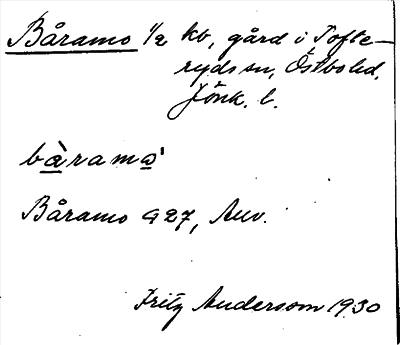 Båramo 1/2 kb, gård i Tofte-
ryds sn, Östbo hd,
Jönk. l.
bàrama'
Båramo 927, Auv.
Fritz Andersson 1930